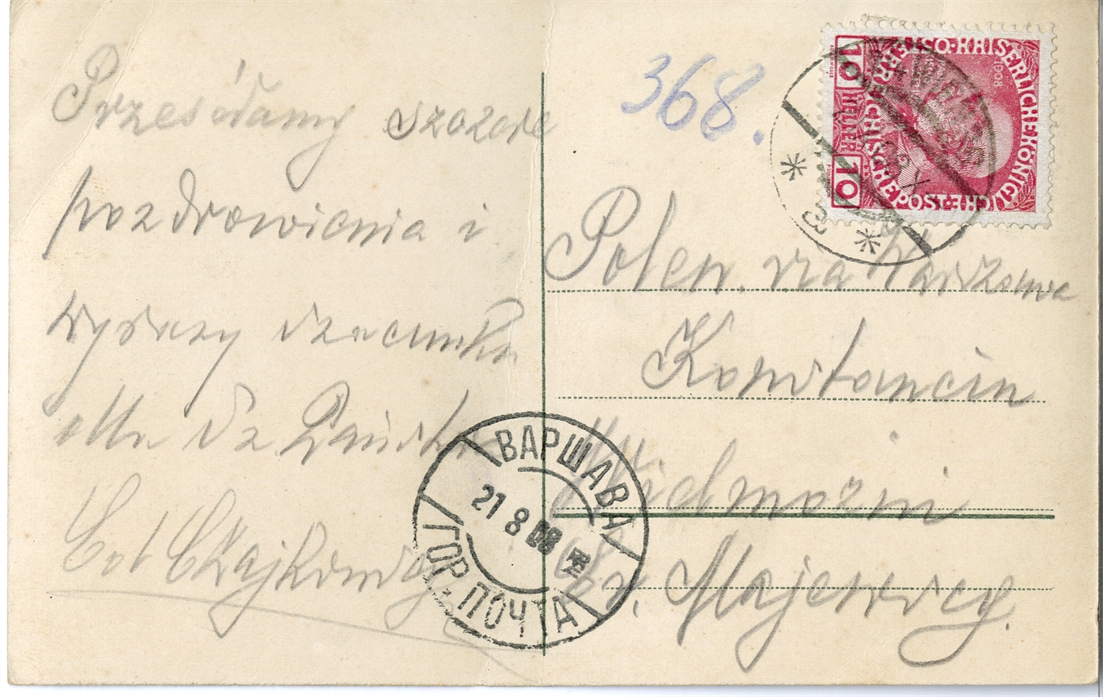 Przesyłamy szczere
pozdrowienia i
wyrazy szacunku
dla Sz. Państwa
Czajkowscy
368.
10 HELLER 10
KAISERLICHE KÖNIGLICHE ÖSTERREICHISCHE POST
1908
Polen via Warszawa
Konstancin
Wielmożni
Majewscy.
ВАРШАВА
21 8 08
ГОР. ПОЧТА